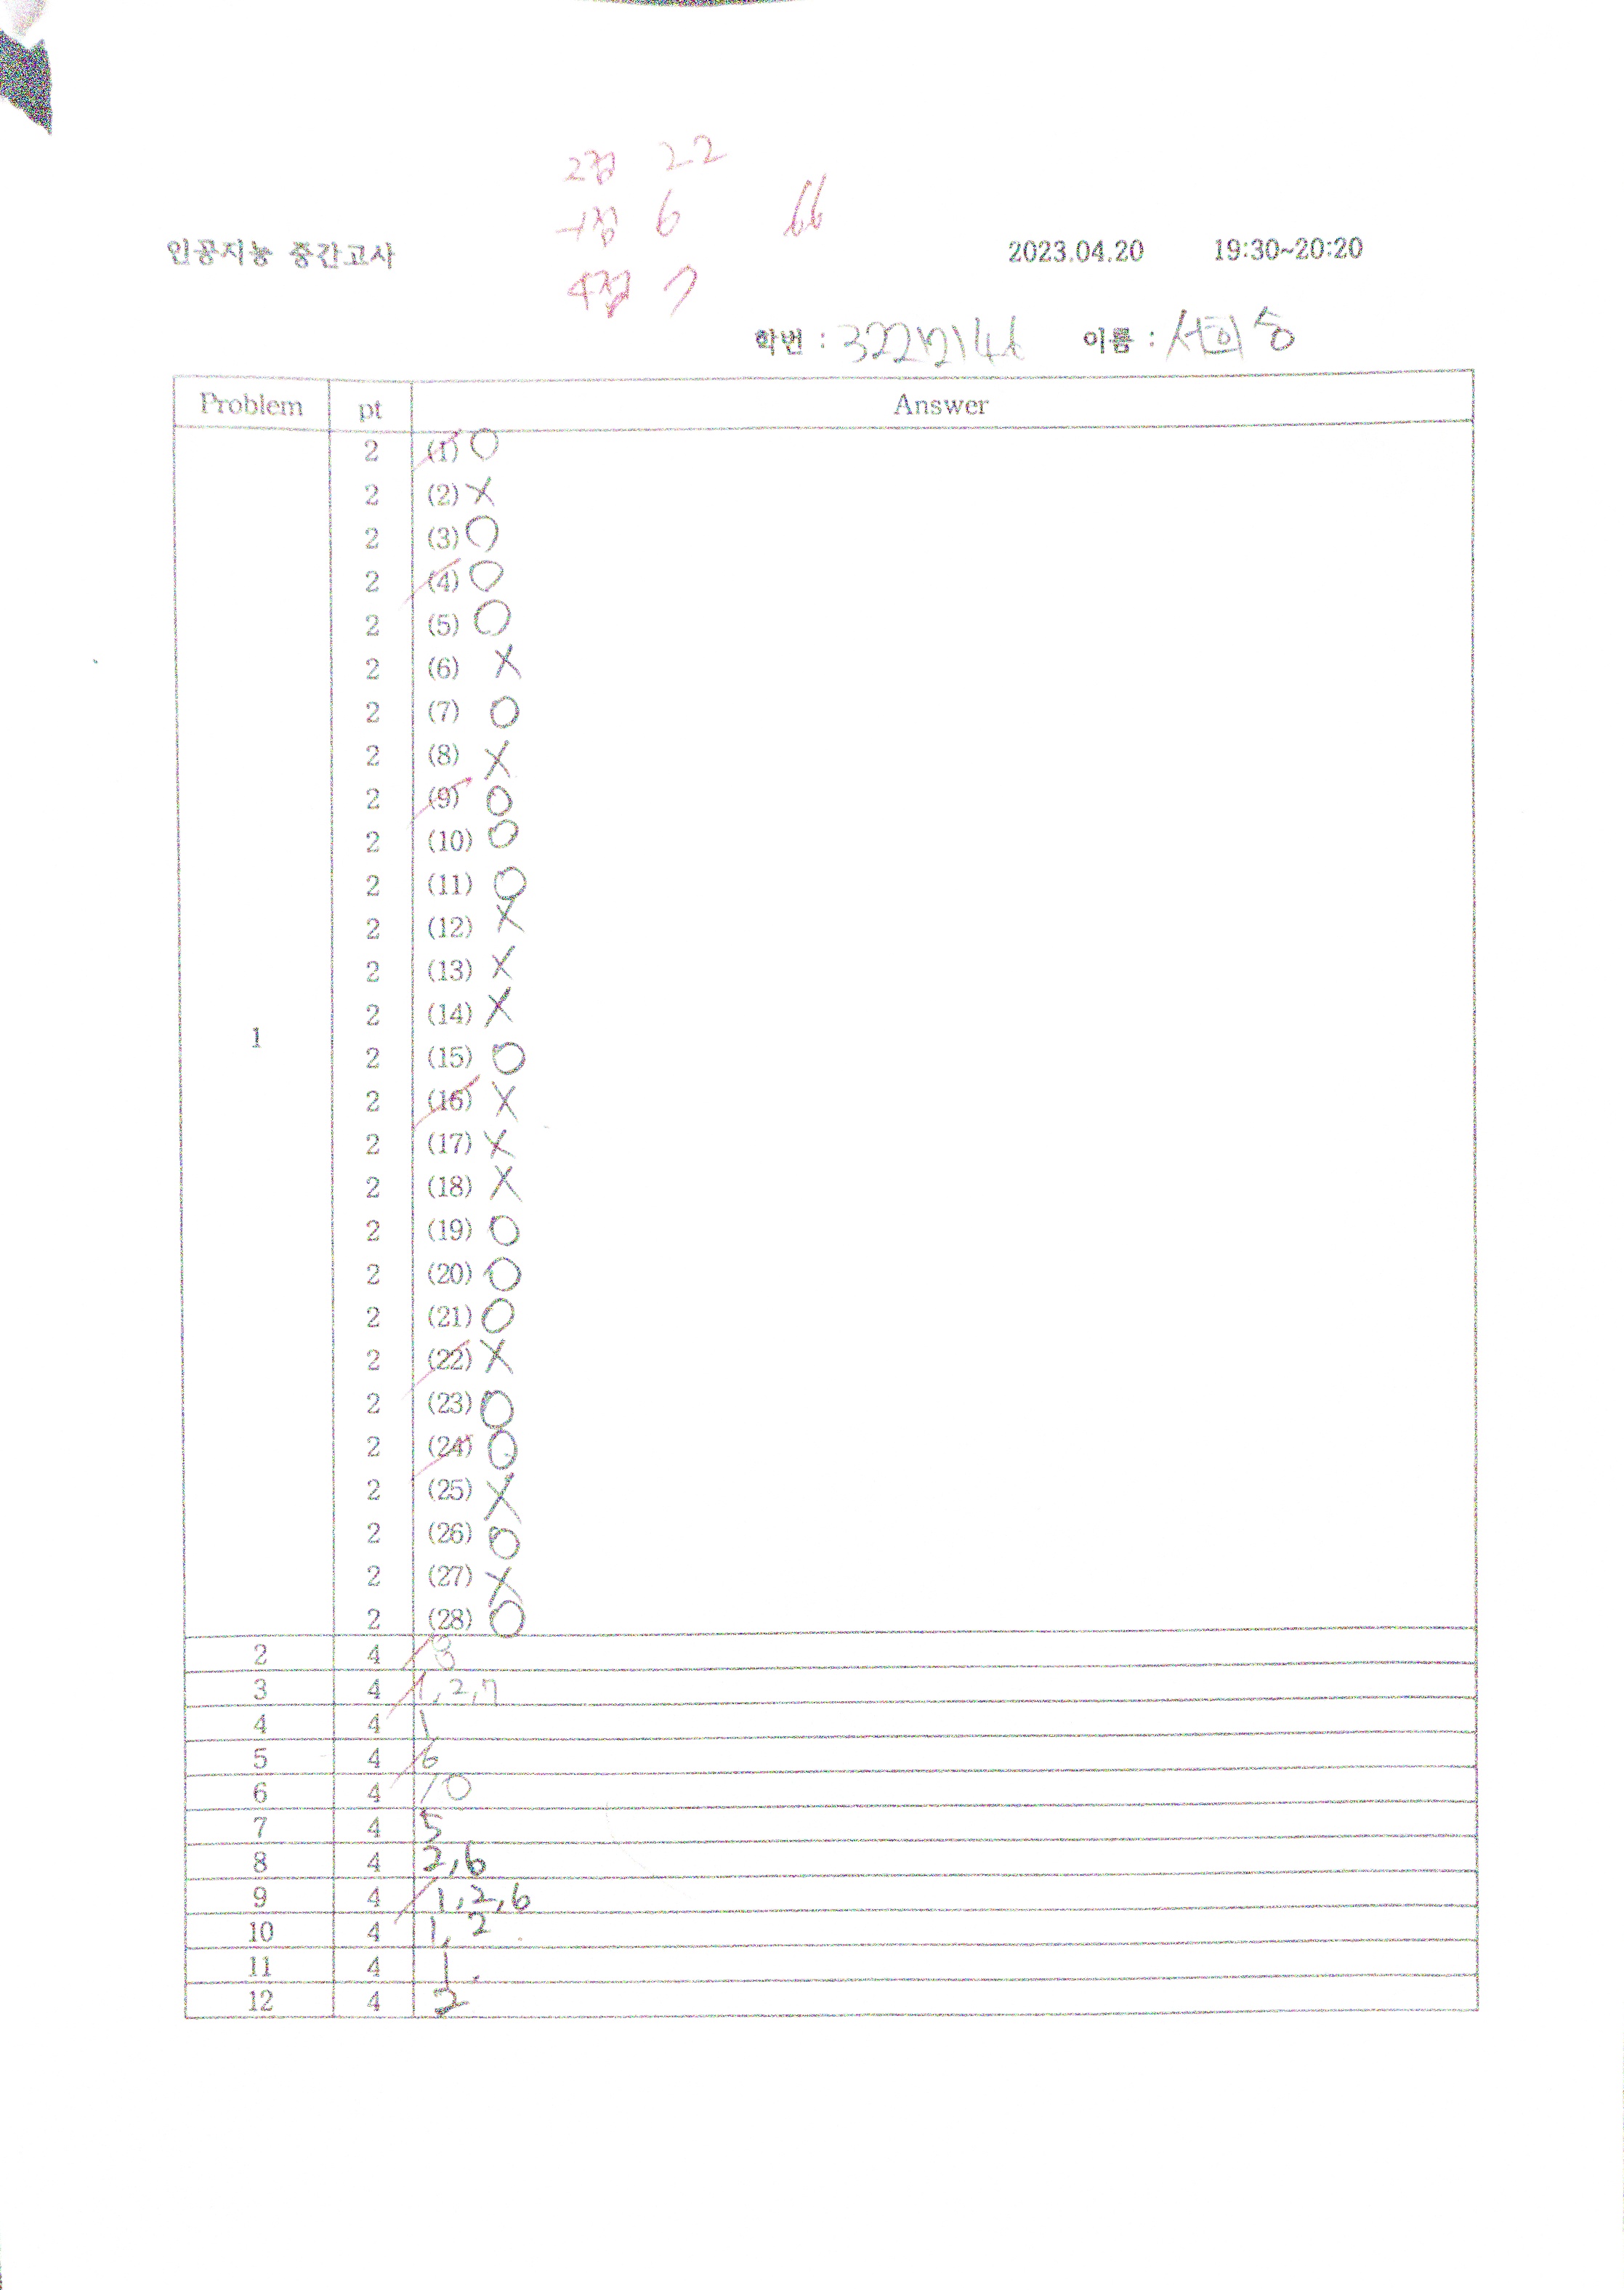 2점 22
-1점 6 66
4점 7
인공지능 중간고사 2023.04.20 19:30~20:20
학번 : 이름 :
Problem pt Answer
2 (1) O
2 (2) X
2 (3) O
2 (4) O
2 (5) O
2 (6) X
2 (7) O
2 (8) X
2 (9) O
2 (10) O
2 (11) O
2 (12) X
2 (13) X
2 (14) X
1
2 (15) O
2 (16) X
2 (17) X
2 (18) X
2 (19) O
2 (20) O
2 (21) O
2 (22) X
2 (23) O
2 (24) O
2 (25) X
2 (26) O
2 (27) X
2 (28) O
2 4 8
3 4 1,2,7
4 4 1
5 4 6
6 4 10
7 4 5
8 4 2,6
9 4 1,2,6
10 4 1,2
11 4 1.
12 4 2